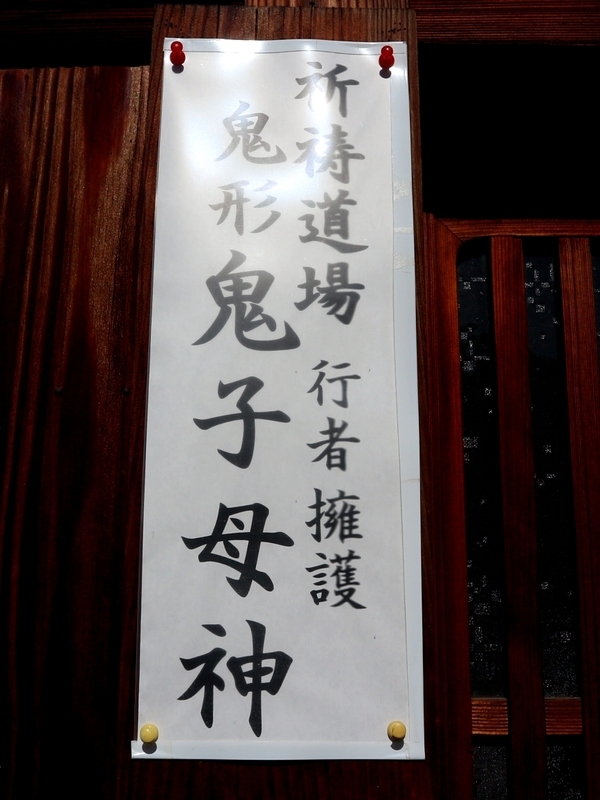 祈祷道場 行者擁護
鬼形鬼子母神